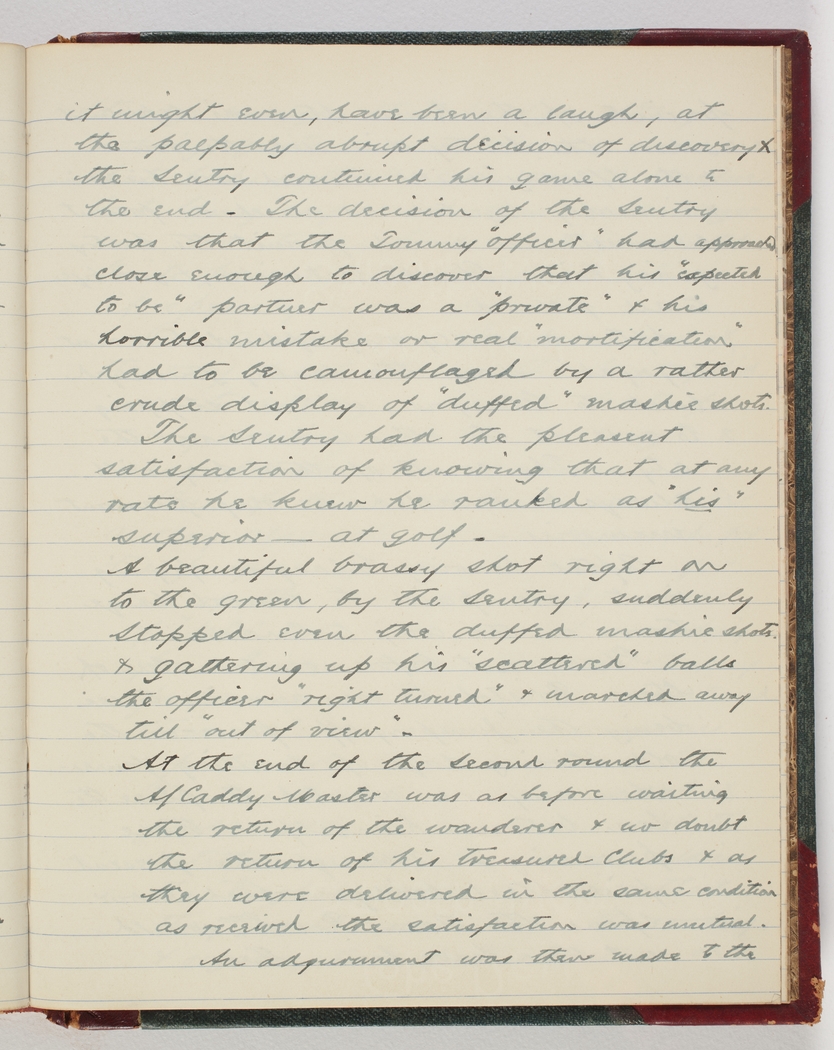 it might even, have been a laugh, at
the palpably abrupt decision of discovery &
the Sentry continued his game alone to
the end - The decision of the Sentry
was that the Tommy "officer" had approached
close enough to discover that his "expected
to be" partner was a "private" & his
horrible mistake or real "mortification"
had to be camouflaged by a rather
crude display of "duffed" mashie shots.
The Sentry had the pleasent
satisfaction of knowing that at any
rate he knew he ranked as "his"
superior — at golf -
A beautiful brassy shot right on
to the green, by the Sentry, suddenly
stopped even the duffed mashie shots.
& gathering up his "scattered" balls
the officer "right turned" & marched away
till "out of view" -
At the end of the second round the
A/Caddy Master was as before waiting
the return of the wanderer & no doubt
the return of his treasured Clubs & as
they were delivered in the same condition
as received the satisfaction was mutual.
An adgurnment was then made to the